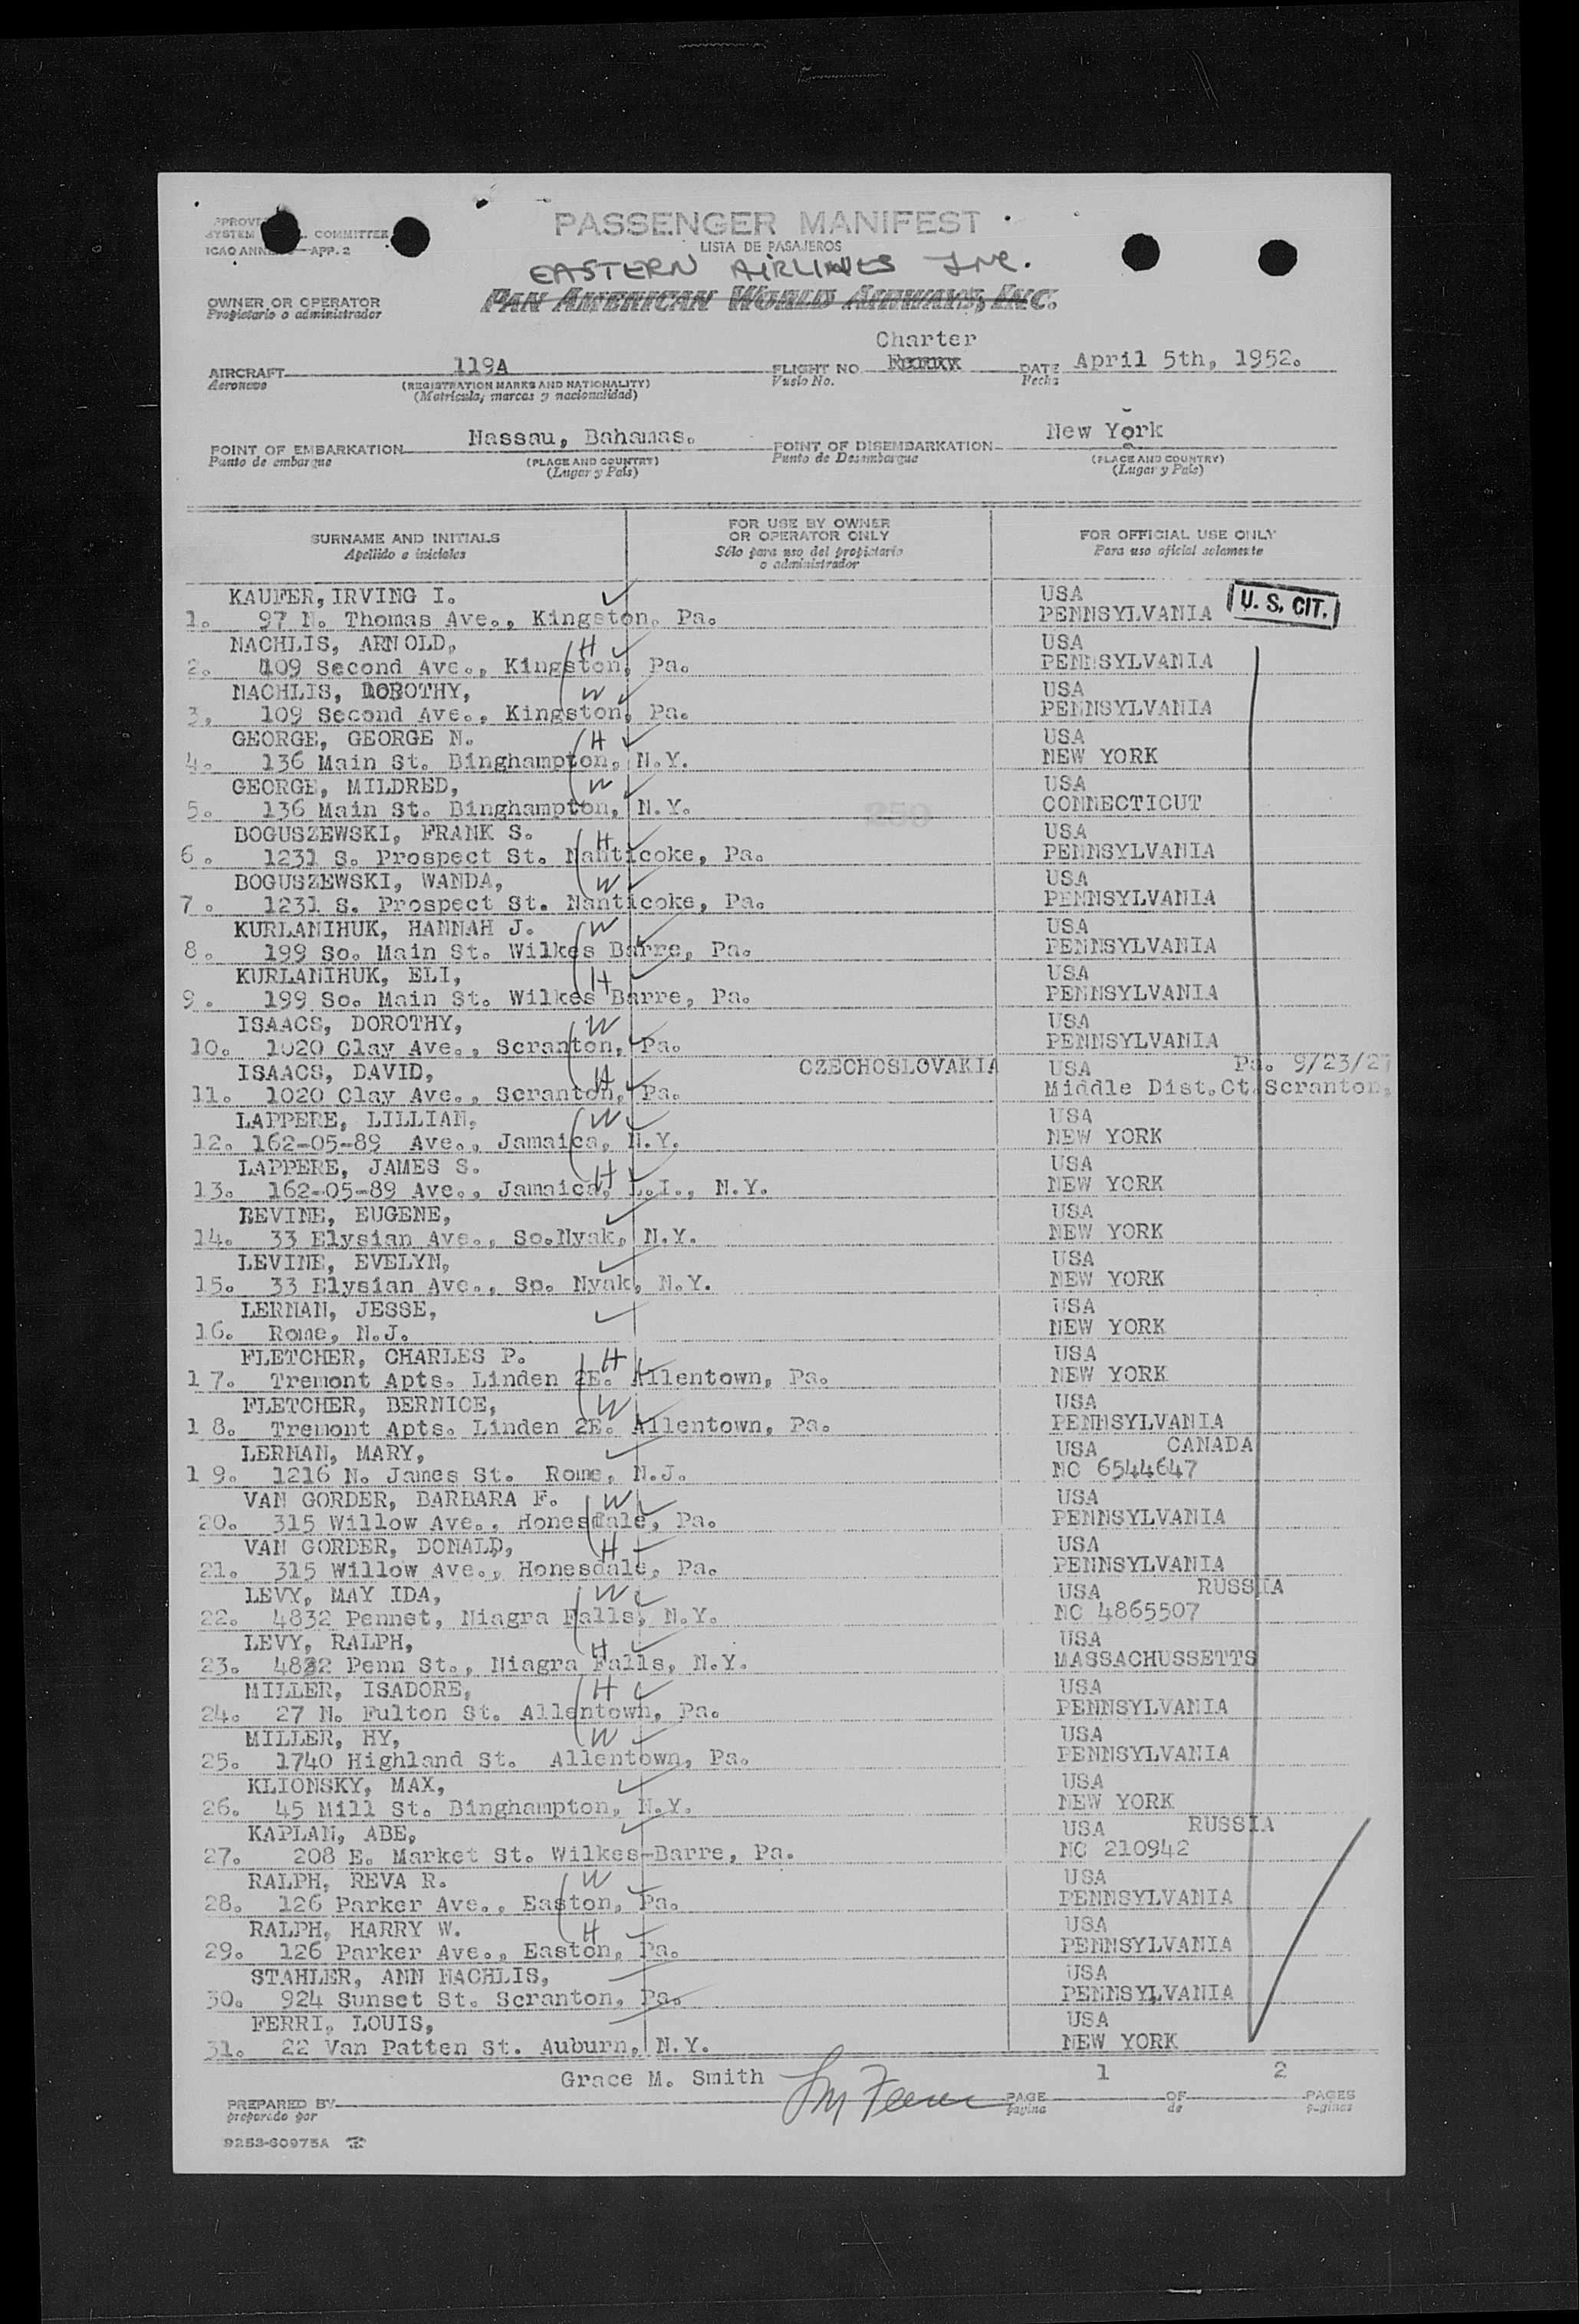 PASSENGER MANIFEST
LISTA DE PASAJEROS
COMMITTEE
SYSTEM
ICAO ANNEX APP. 2
EASTERN AIRLINES INC.
PAN AMERICAN WORLD AIRWAYS, INC.
OWNER OR OPERATOR
Propietario o administrador
Charter
AIRCRAFT 119A FLIGHT NO. DATE April 5th, 1952.
Aeronave (REGISTRATION MARKS AND NATIONALITY) Vuelo No. Fecha
(Matricula, marcas y nacionalidad)
POINT OF EMBARKATION Nassau, Bahamas. POINT OF DISEMBARKATION New York
Punto de embarque (PLACE AND COUNTRY) Punto de Desembarque (PLACE AND COUNTRY)
(Lugar y País) (Lugar y País)
SURNAME AND INITIALS FOR USE BY OWNER OR OPERATOR ONLY FOR OFFICIAL USE ONLY
Apellido e iniciales Sólo para uso del propietario o administrador Para uso oficial solamente
KAUFER, IRVING I. USA U. S. CIT.
1. 97 N. Thomas Ave., Kingston, Pa. PENNSYLVANIA
NACHLIS, ARNOLD, H USA
2. 109 Second Ave., Kingston, Pa. PENNSYLVANIA
NACHLIS, DOROTHY, W USA
3. 109 Second Ave., Kingston, Pa. PENNSYLVANIA
GEORGE, GEORGE N. H USA
4. 136 Main St. Binghampton, N.Y. NEW YORK
GEORGE, MILDRED, W USA
5. 136 Main St. Binghampton, N.Y. CONNECTICUT
BOGUSZEWSKI, FRANK S. H USA
6. 1231 S. Prospect St. Nanticoke, Pa. PENNSYLVANIA
BOGUSZEWSKI, WANDA, W USA
7. 1231 S. Prospect St. Nanticoke, Pa. PENNSYLVANIA
KURLANIHUK, HANNAH J. W USA
8. 199 So. Main St. Wilkes Barre, Pa. PENNSYLVANIA
KURLANIHUK, ELI, H USA
9. 199 So. Main St. Wilkes Barre, Pa. PENNSYLVANIA
ISAACS, DOROTHY, W USA
10. 1020 Clay Ave., Scranton, Pa. PENNSYLVANIA
ISAACS, DAVID, H CZECHOSLOVAKIA USA Pa. 9/23/27
11. 1020 Clay Ave., Scranton, Pa. Middle Dist.Ct.Scranton,
LAPPERE, LILLIAN, W USA
12. 162-05-89 Ave., Jamaica, N.Y. NEW YORK
LAPPERE, JAMES S. H USA
13. 162-05-89 Ave., Jamaica, L.I., N.Y. NEW YORK
LEVINE, EUGENE, USA
14. 33 Elysian Ave., So.Nyak, N.Y. NEW YORK
LEVINE, EVELYN, USA
15. 33 Elysian Ave., So. Nyak, N.Y. NEW YORK
LERMAN, JESSE, USA
16. Rome, N.J. NEW YORK
FLETCHER, CHARLES P. H USA
17. Tremont Apts. Linden 2E. Allentown, Pa. NEW YORK
FLETCHER, BERNICE, W USA
18. Tremont Apts. Linden 2E. Allentown, Pa. PENNSYLVANIA
LERMAN, MARY, USA CANADA
19. 1216 N. James St. Rome, N.J. NC 6544647
VAN GORDER, BARBARA F. W USA
20. 315 Willow Ave., Honesdale, Pa. PENNSYLVANIA
VAN GORDER, DONALD, H USA
21. 315 Willow Ave., Honesdale, Pa. PENNSYLVANIA
LEVY, MAY IDA, W USA RUSSIA
22. 4832 Pennet, Niagra Falls, N.Y. NC 4865507
LEVY, RALPH, H USA
23. 4832 Penn St., Niagra Falls, N.Y. MASSACHUSSETTS
MILLER, ISADORE, H USA
24. 27 N. Fulton St. Allentown, Pa. PENNSYLVANIA
MILLER, HY, W USA
25. 1740 Highland St. Allentown, Pa. PENNSYLVANIA
KLIONSKY, MAX, USA
26. 45 Mill St. Binghampton, N.Y. NEW YORK
KAPLAN, ABE, USA RUSSIA
27. 208 E. Market St. Wilkes-Barre, Pa. NC 210942
RALPH, REVA R. W USA
28. 126 Parker Ave., Easton, Pa. PENNSYLVANIA
RALPH, HARRY W. H USA
29. 126 Parker Ave., Easton, Pa. PENNSYLVANIA
STAHLER, ANN NACHLIS, USA
30. 924 Sunset St. Scranton, Pa. PENNSYLVANIA
FERRI, LOUIS, USA
31. 22 Van Patten St. Auburn, N.Y. NEW YORK
PREPARED BY Grace M. Smith PAGE 1 OF 2 PAGES
preparado por página de páginas
9253-60975A